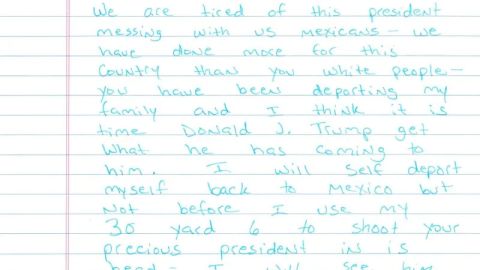 We are tired of this president
messing with us mexicans - we
have done more for this
Country than you white people -
you have been deporting my
family and I think it is
time Donald J. Trump get
What he has coming to
him. I will self deport
myself back to Mexico but
not before I use my
30 yard 6 to shoot your
precious president in is
head - I will see him